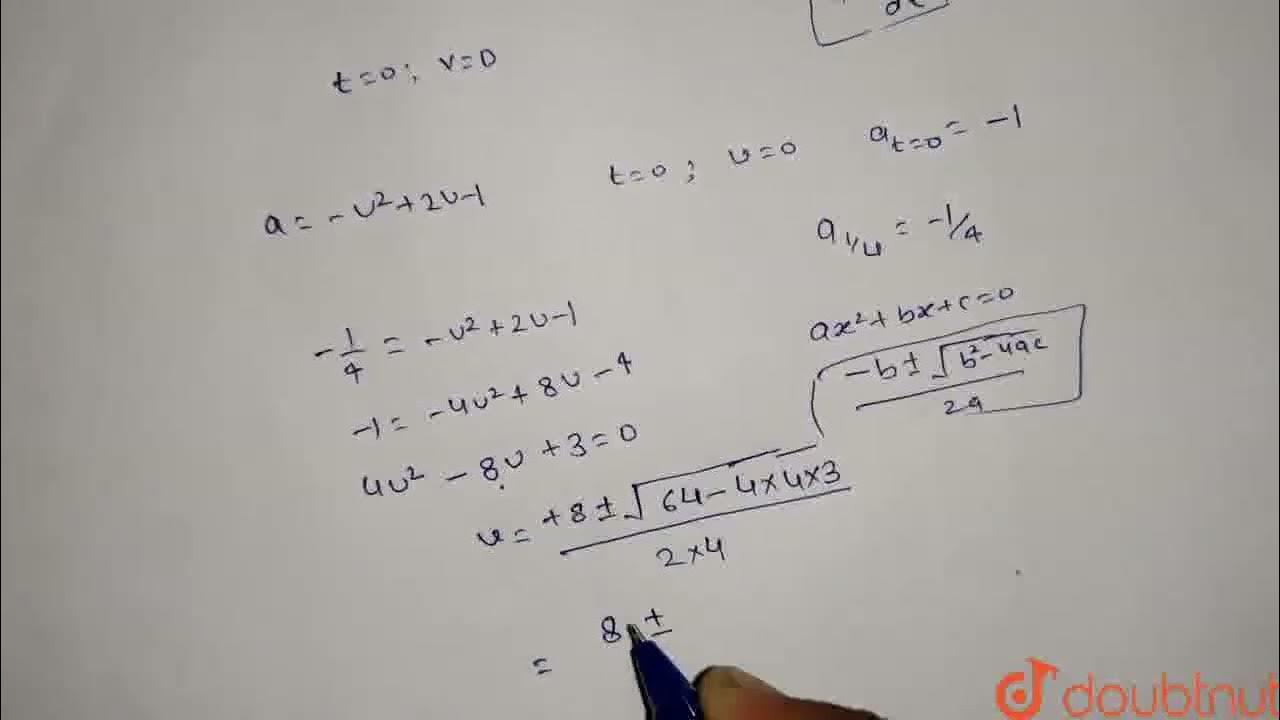 t=0; v=0
t=0; v=0
a_{t=0} = -1
a = -v² + 2v - 1
a_{1/4} = -1/4
-1/4 = -v² + 2v - 1
ax² + bx + c = 0
-b ± √(b² - 4ac) / 2a
-1 = -4v² + 8v - 4
4v² - 8v + 3 = 0
v = +8 ± √(64 - 4×4×3) / 2×4
= 8 ±
doubtnut